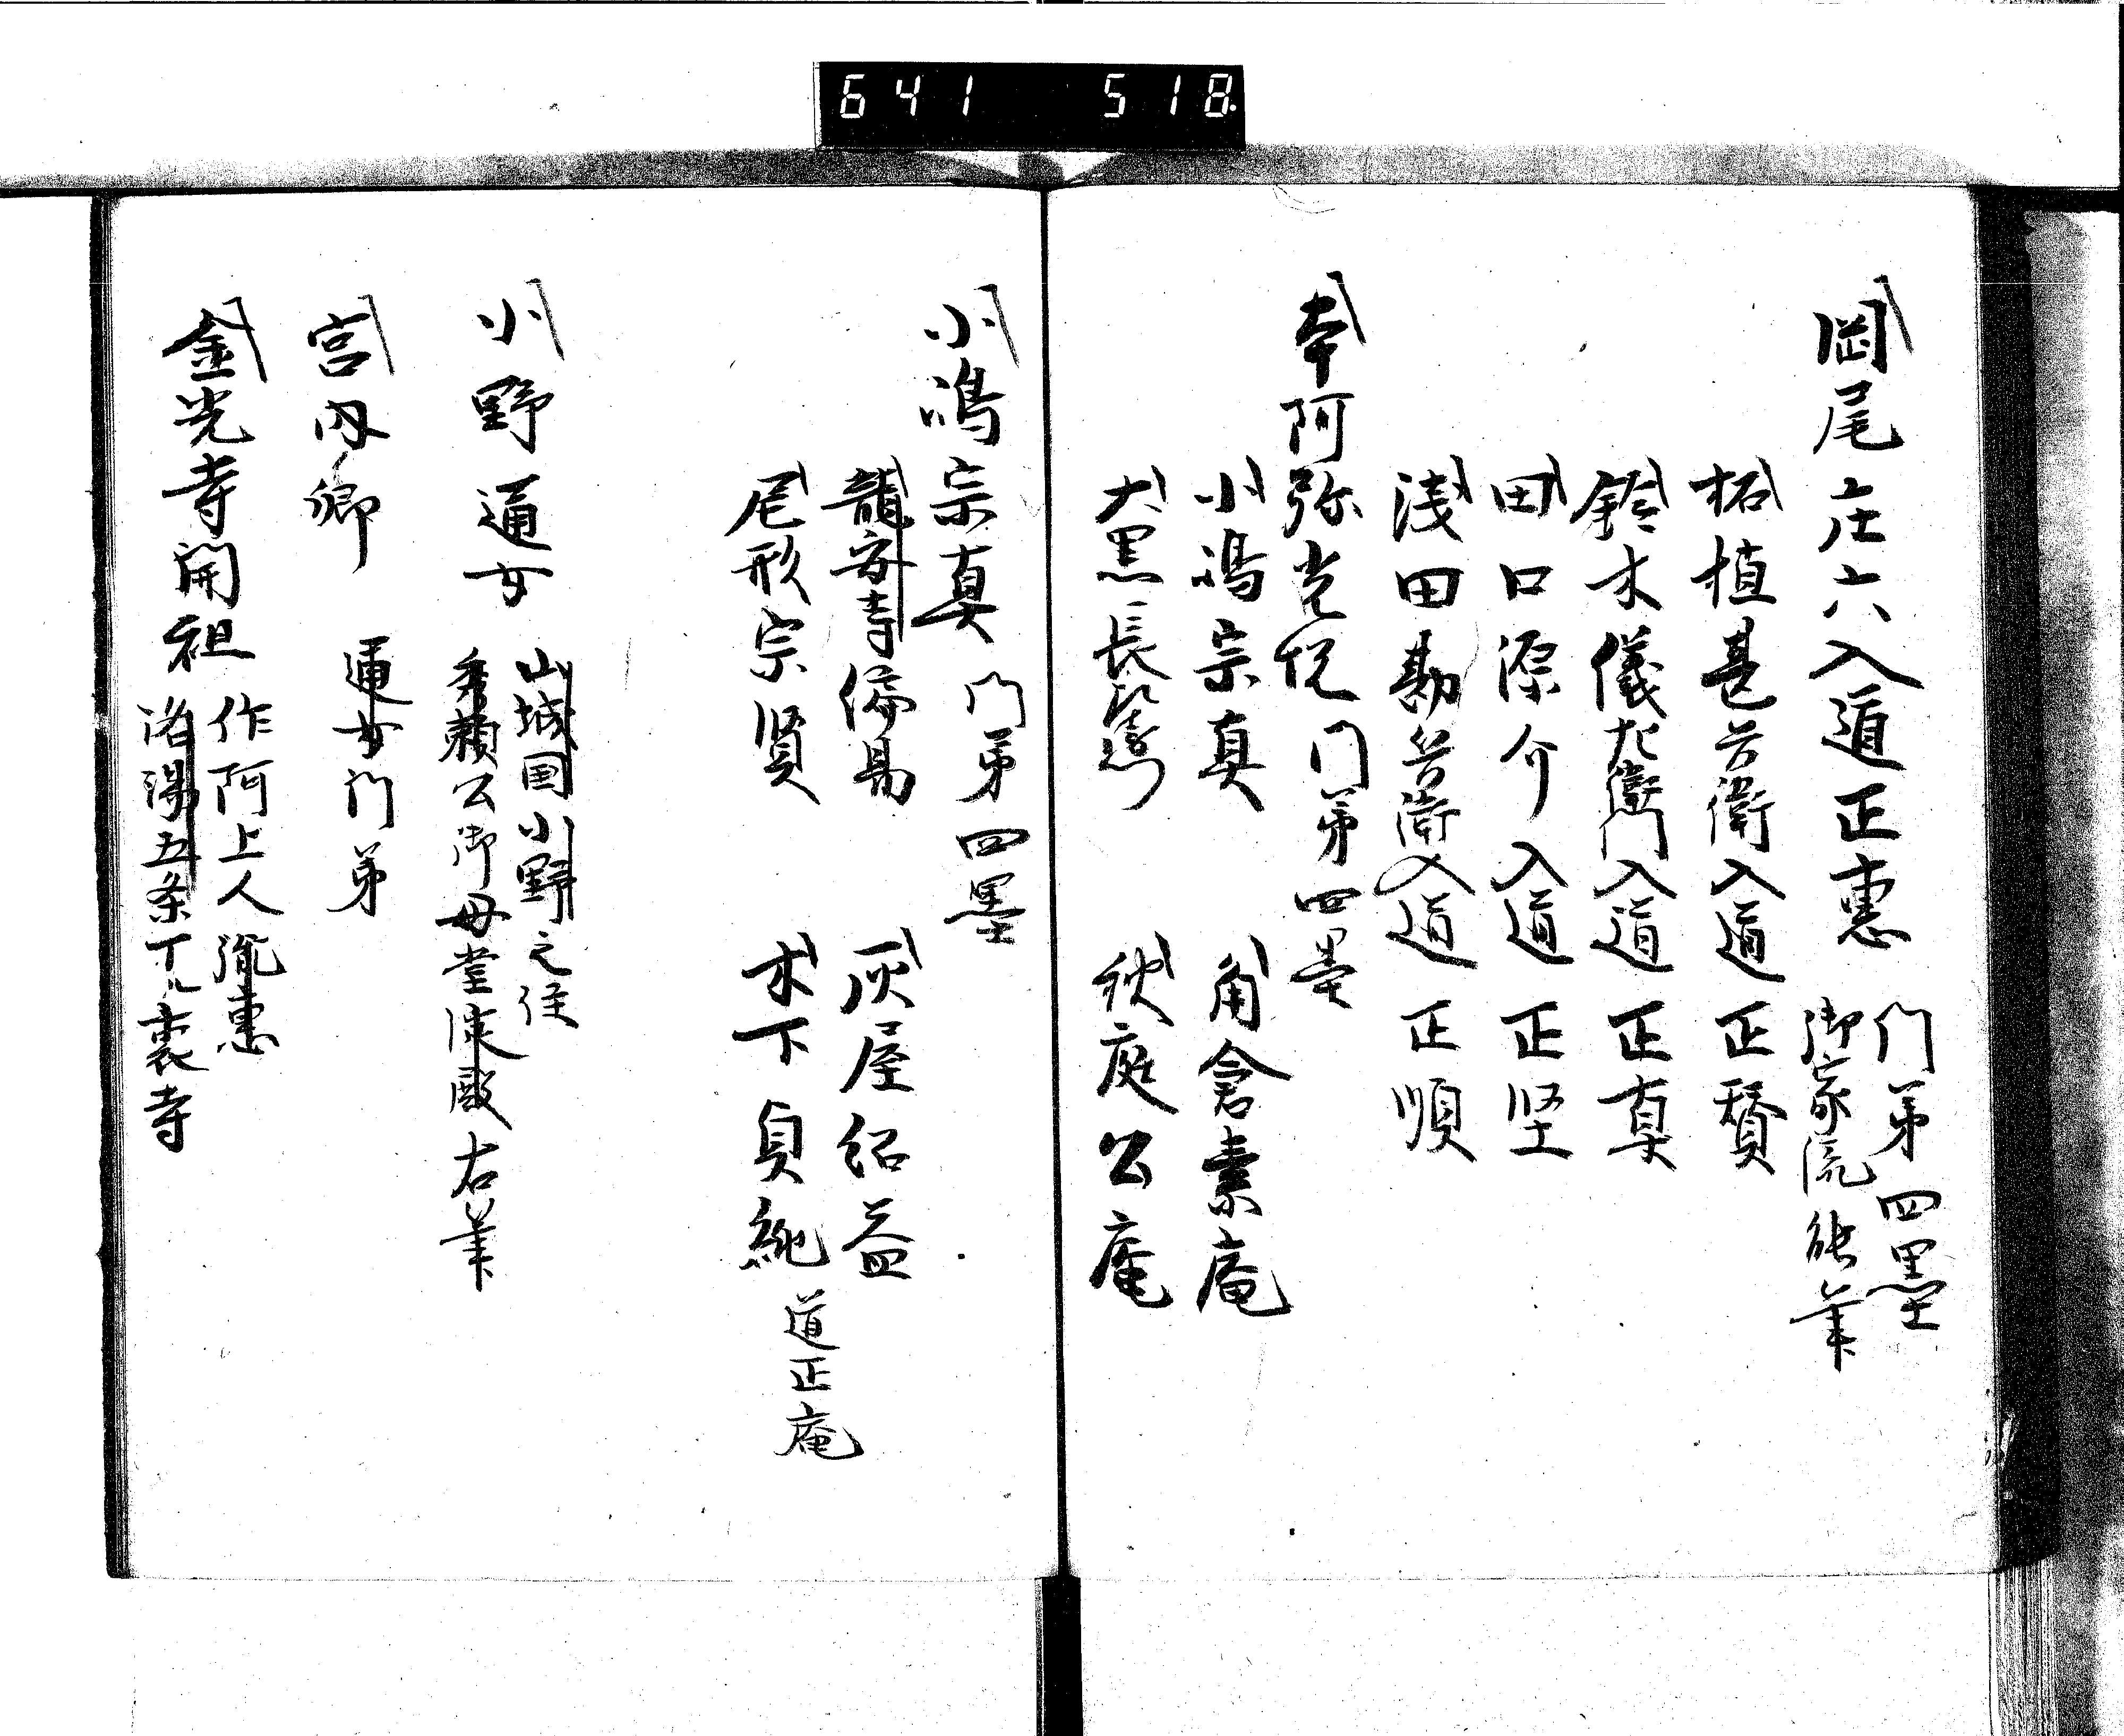 641 518
岡尾庄六入道正恵 門弟四墨
御家流能筆
柘植甚兵衛入道正賢
鈴木儀左衛門入道正真
田口源介入道正堅
浅田勘兵衛入道正順
本阿弥光悦 門弟四墨
小嶋宗真 角倉素庵
大黒 秋庭公庵
小嶋宗真 門弟四墨
龍安寺偏易 灰屋紹益
尾形宗賢 木下貞純 道正庵
小野通女 山城国小野之住
秀頼公御母堂淀殿右筆
宮内卿 通女門弟
金光寺開祖 作阿上人
洛陽五条 裏寺